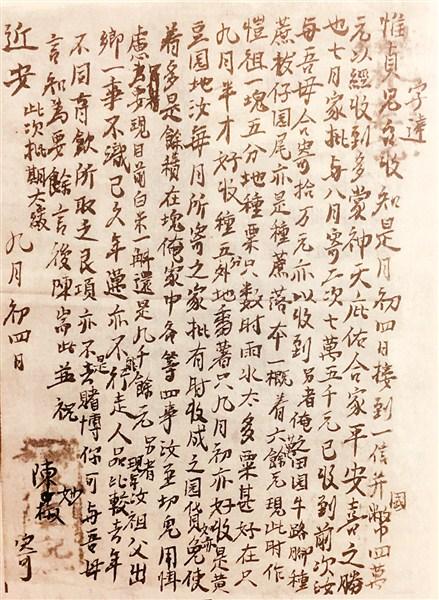 字達
惟貞兄台收知是月初四日接到一信并國幣四萬
元以經收到多蒙神天庇佑合家平安喜之勝
也七月家批与八月寄二次七萬五千元已收到前次汝
每吾母合寄拾万元亦以收到另者俺芝田园牛路脚種
蔗枋仔园尾亦是種蔗落本一概看六餘元現此時作
愷祖一塊五分地種粟只数时雨水太多粟甚好在只
九月半才好收種五外地番薯只九月初亦好收是黄
豆园地汝每月所寄之家批有时收成之园貨免使
着多是餘積在塊俺家中各等四事汝至切免用惧
慮要現目前白米一斛還是九千餘元另者現年汝祖父出
鄉一事不識已久年邁亦不能行走人品比較去年
不同育飲所取之艮項亦不是去賭博你可与吾母
言知為要餘言後陳耑此並祝
近安
此次批期太緩
九月初四日
陳妙 寄